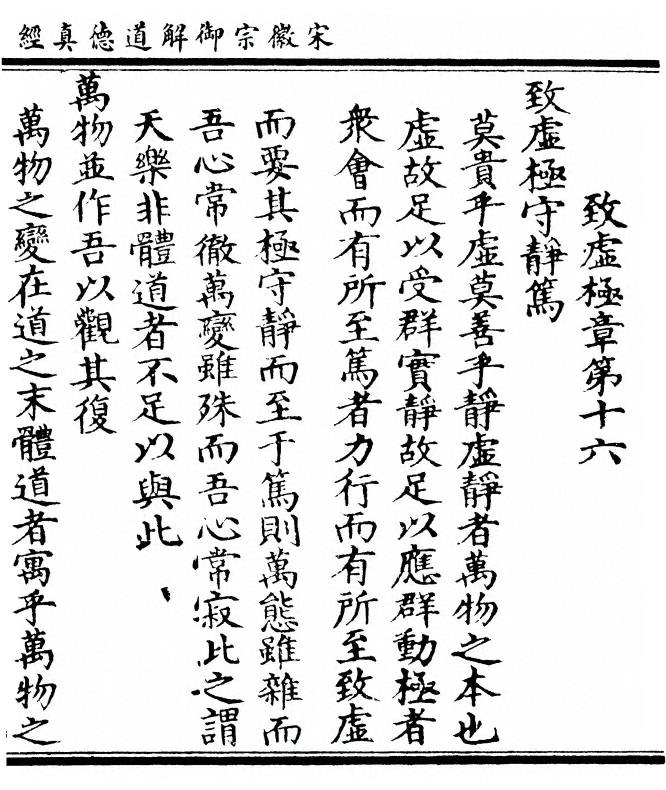 宋徽宗御解道德真經
致虛極章第十六
致虛極守靜篤
莫貴乎虛莫善乎靜虛靜者萬物之本也
虛故足以受群實靜故足以應群動極者
眾會而有所至篤者力行而有所至致虛
而要其極守靜而至于篤則萬態雖雜而
吾心常徹萬變雖殊而吾心常寂此之謂
天樂非體道者不足以與此
萬物並作吾以觀其復
萬物之變在道之末體道者寓乎萬物之